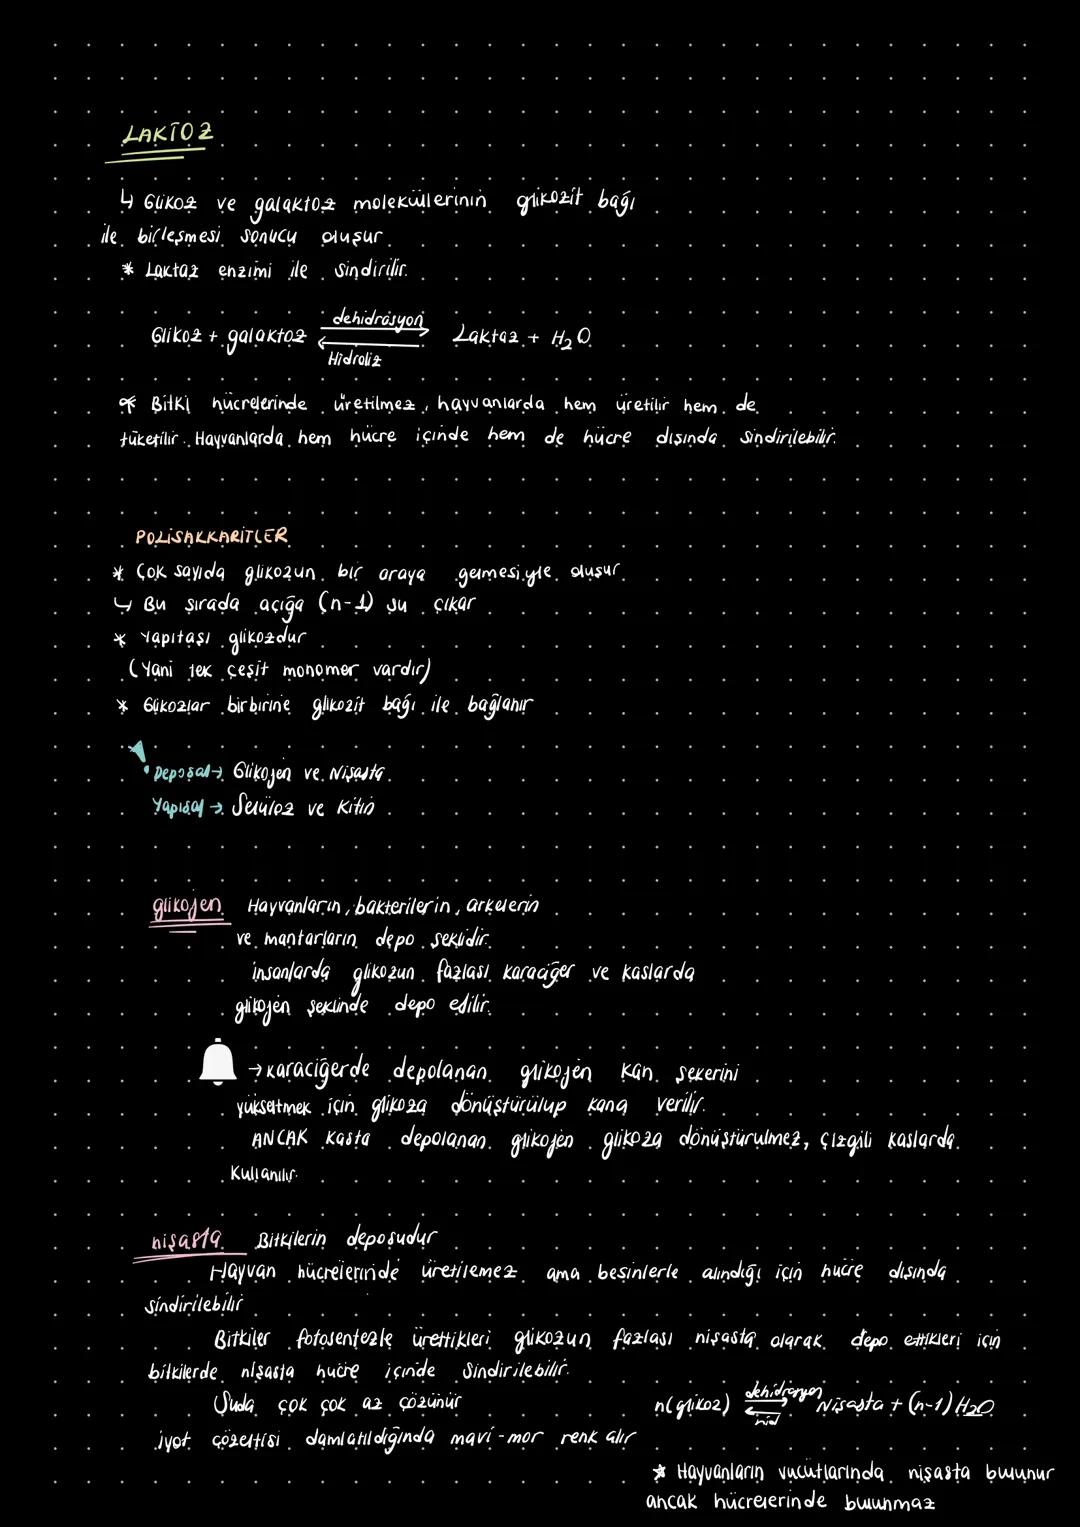 LAKTOZ
↳ Glikoz ve galaktoz moleküllerinin glikozit bağı
ile birleşmesi sonucu oluşur.
* Laktaz enzimi ile sindirilir.
Glikoz + galaktoz dehidrasyon Laktaz + H₂O
Hidroliz
* Bitki hücrelerinde üretilmez, hayvanlarda hem üretilir hem de
tüketilir. Hayvanlarda hem hücre içinde hem de hücre dışında sindirilebilir.
POLİSAKKARİTLER
* Çok sayıda glikozun bir araya gelmesiyle oluşur.
↳ Bu sırada açığa (n-1) su çıkar
* Yapıtaşı glikozdur
(Yani tek çeşit monomer vardır)
* Glikozlar birbirine glikozit bağı ile bağlanır
! Deposal → Glikojen ve Nişasta.
Yapısal → Selüloz ve Kitin
glikojen Hayvanların, bakterilerin, arkelerin
ve mantarların depo şeklidir.
insanlarda glikozun fazlası karaciğer ve kaslarda
glikojen şeklinde depo edilir.
→ karaciğerde depolanan glikojen kan şekerini
yükseltmek için glikoza dönüştürülüp kana verilir.
ANCAK kasta depolanan glikojen glikoza dönüştürülmez, çizgili kaslarda
kullanılır.
nişasta Bitkilerin deposudur
Hayvan hücrelerinde üretilemez ama besinlerle alındığı için hücre dışında
sindirilebilir
Bitkiler fotosentezle ürettikleri glikozun fazlası nişasta olarak depo ettikleri için
bitkilerde nişasta hücre içinde sindirilebilir.
Suda çok çok az çözünür
n(glikoz) dehidrasyon Nişasta + (n-1) H₂O
hid
iyot çözeltisi damlatıldığında mavi-mor renk alır
* Hayvanların vücutlarında nişasta bulunur
ancak hücrelerinde bulunmaz